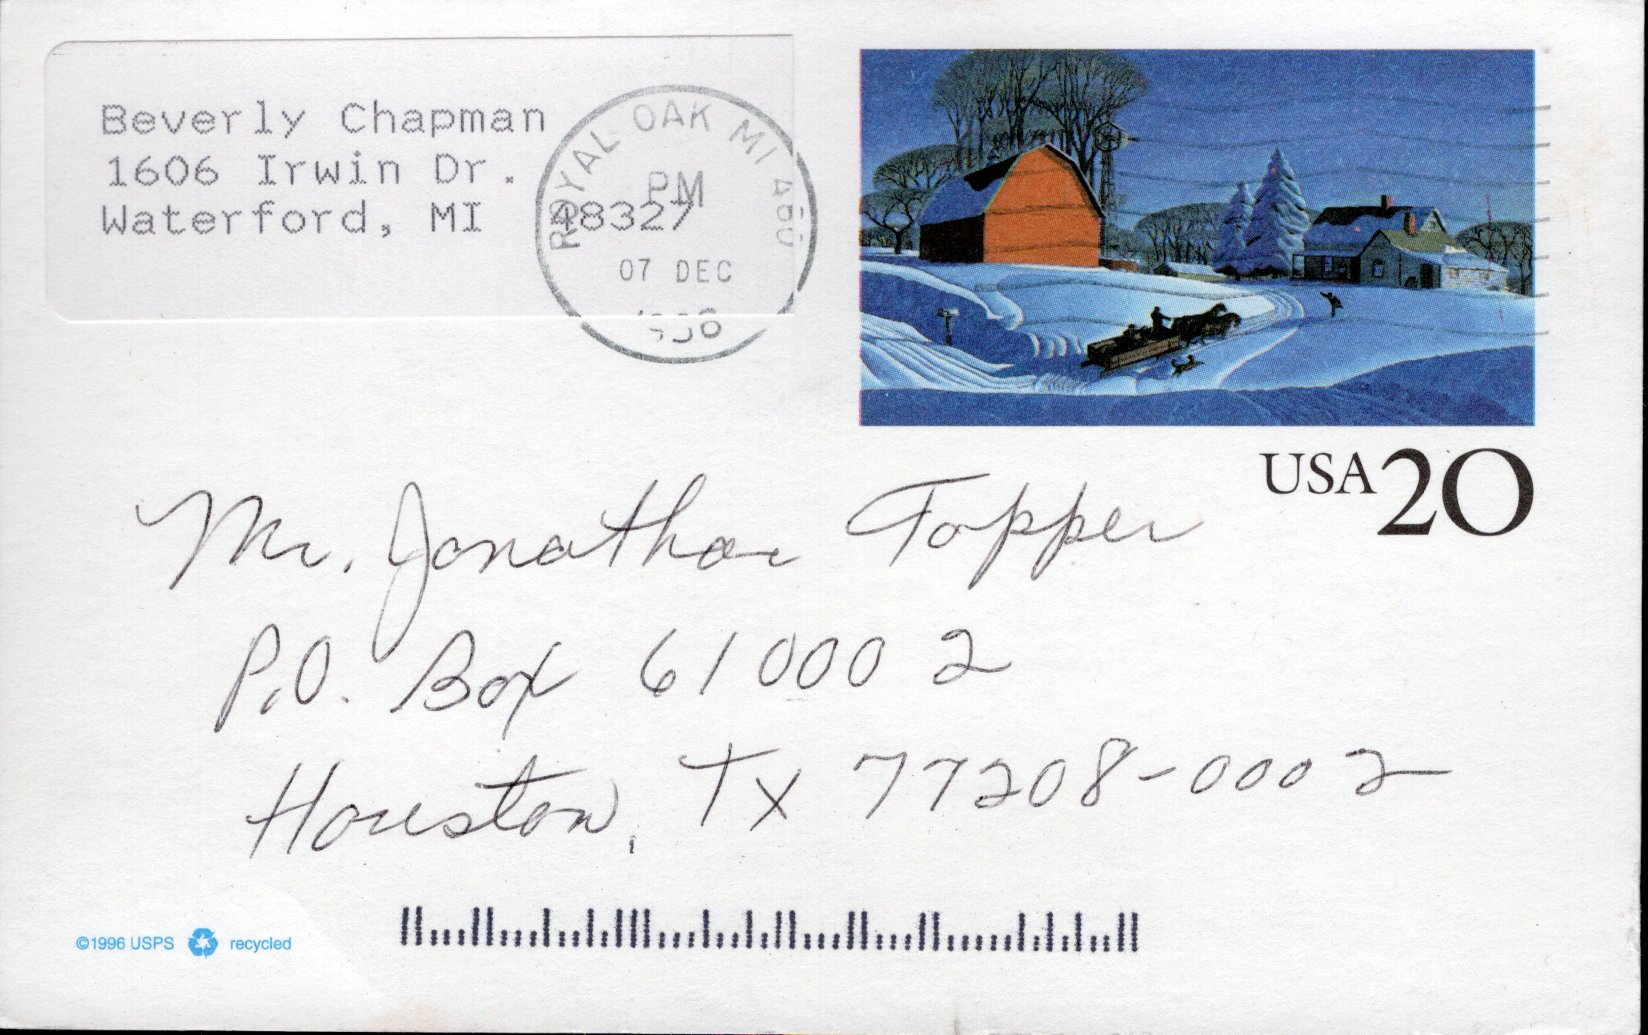 Beverly Chapman
1606 Irwin Dr.
Waterford, MI 48327
ROYAL OAK MI 480
PM
07 DEC
1996
USA 20
Mr. Jonathan Topper
P.O. Box 610002
Houston, TX 77208-0002
©1996 USPS recycled